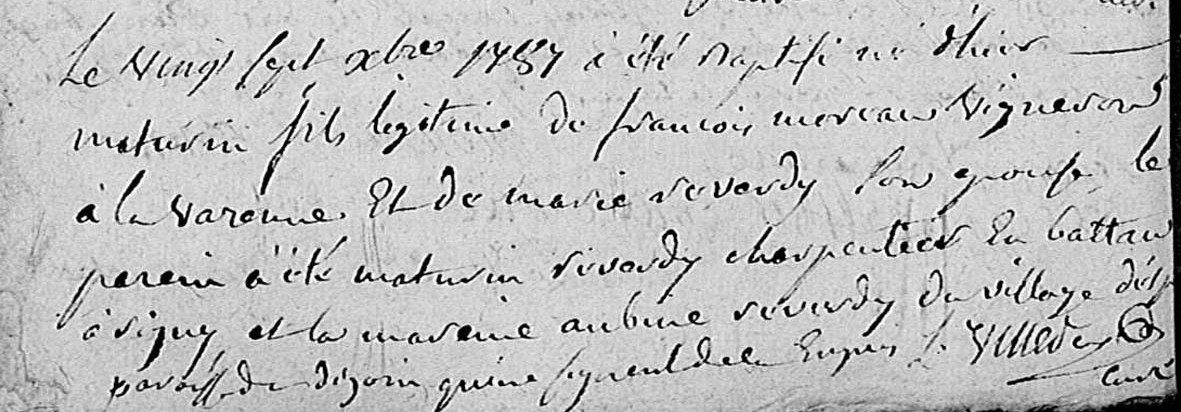 Le vingt sept xbre 1787 a été baptisé né d'hier
maturin fils legitime de francois moreau vigneron
à la varenne Et de marie reverdy son epouse le
parein a été maturin reverdy charpentier En battau
à rigny et la mareine aubine reverdy du village
paroisse de dizoin qui ne signent de ce Enquis
curé